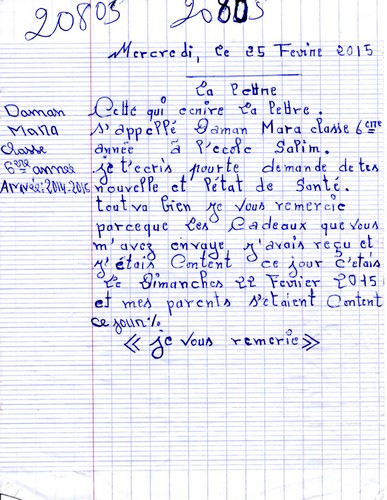 20803 20803
Mercredi, le 25 Fevrine 2015
La Lettre
Daman
Mara
classe
6ème annee
Année: 2014-2015
Cette qui ecrire La Lettre.
s'appellé Daman Mara classe 6ème
année à l'ecole Salim.
je t'ecris pourte demande de tes
nouvelle et l'état de Santé.
tout va bien je vous remercie
parceque les Cadeaux que vous
m'avez envaye j'avais reçu et
j'étais Content ce jour c'étais
Le Dimanches 22 Fevrier 2015
et mes parents s'etaient Content
ce jour %
« je vous remerie »